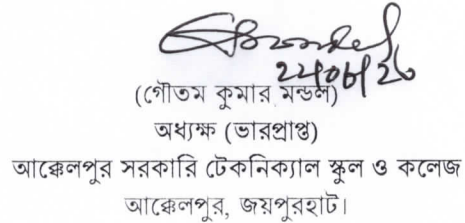 22/06/26
(গৌতম কুমার মন্ডল)
অধ্যক্ষ (ভারপ্রাপ্ত)
আক্কেলপুর সরকারি টেকনিক্যাল স্কুল ও কলেজ
আক্কেলপুর, জয়পুরহাট।